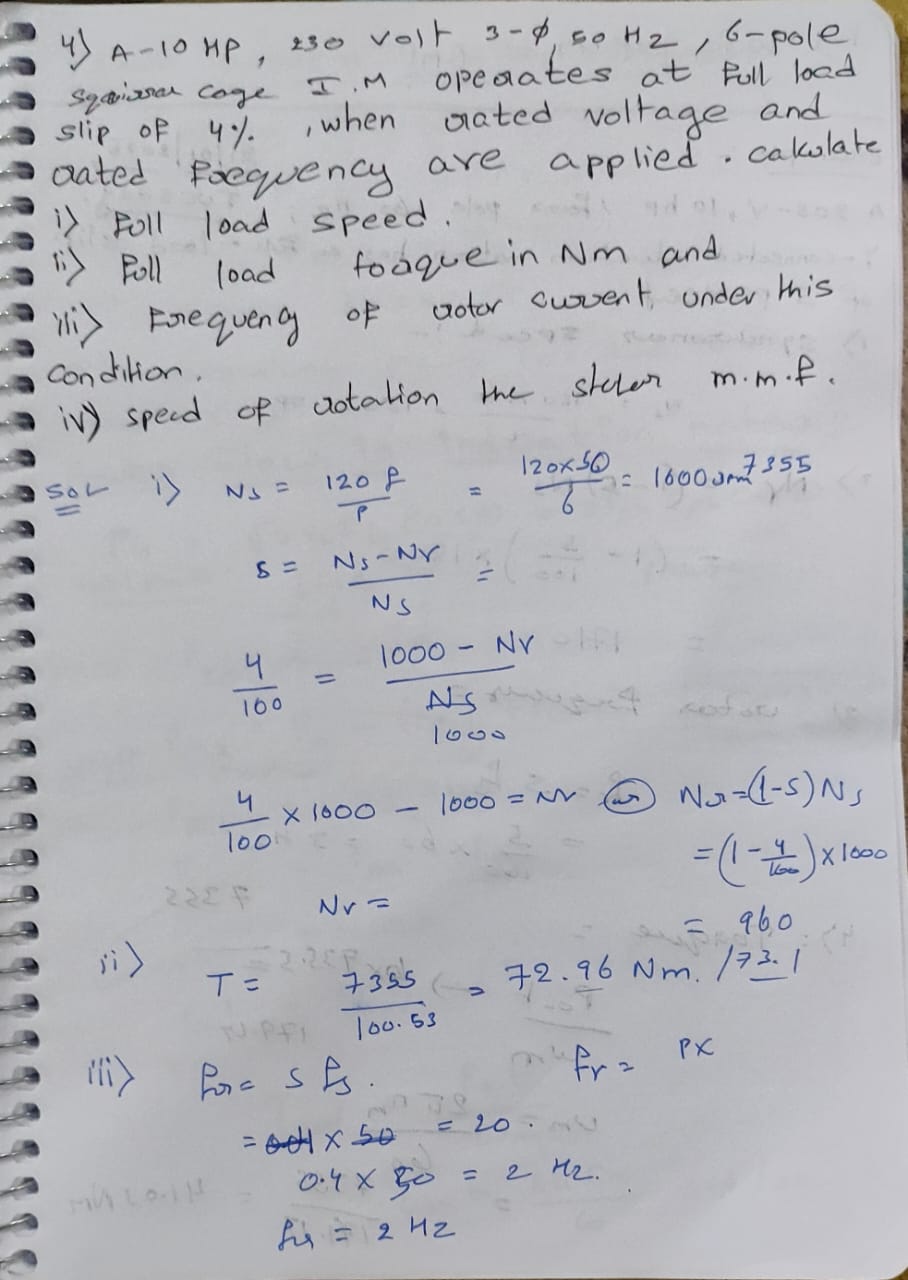 4) A-10 HP, 230 volt 3-ϕ, 50 Hz, 6-pole
squirrel cage I.M operates at full load
slip of 4%, when rated voltage and
rated frequency are applied. calculate
i) Full load speed.
ii) Full load torque in Nm and
iii) Frequency of rotor current under this
condition.
iv) speed of rotation the stator m.m.f.
Sol i) Ns = 120 f / P = 120x50 / 6 = 1000 rpm 7355
s = Ns - Nr / Ns =
4 / 100 = 1000 - Nr / Ns 1000
4 / 100 x 1000 - 1000 = Nr (or) Nr = (1-s) Ns
= (1 - 4/100) x 1000
Nr =
= 960
ii) T = 7355 / 100.53 = 72.96 Nm. /73.1
iii) fr = s fs. fr = PX
= 0.04 x 50 = 20.
0.4 x 50 = 2 Hz.
fr = 2 Hz